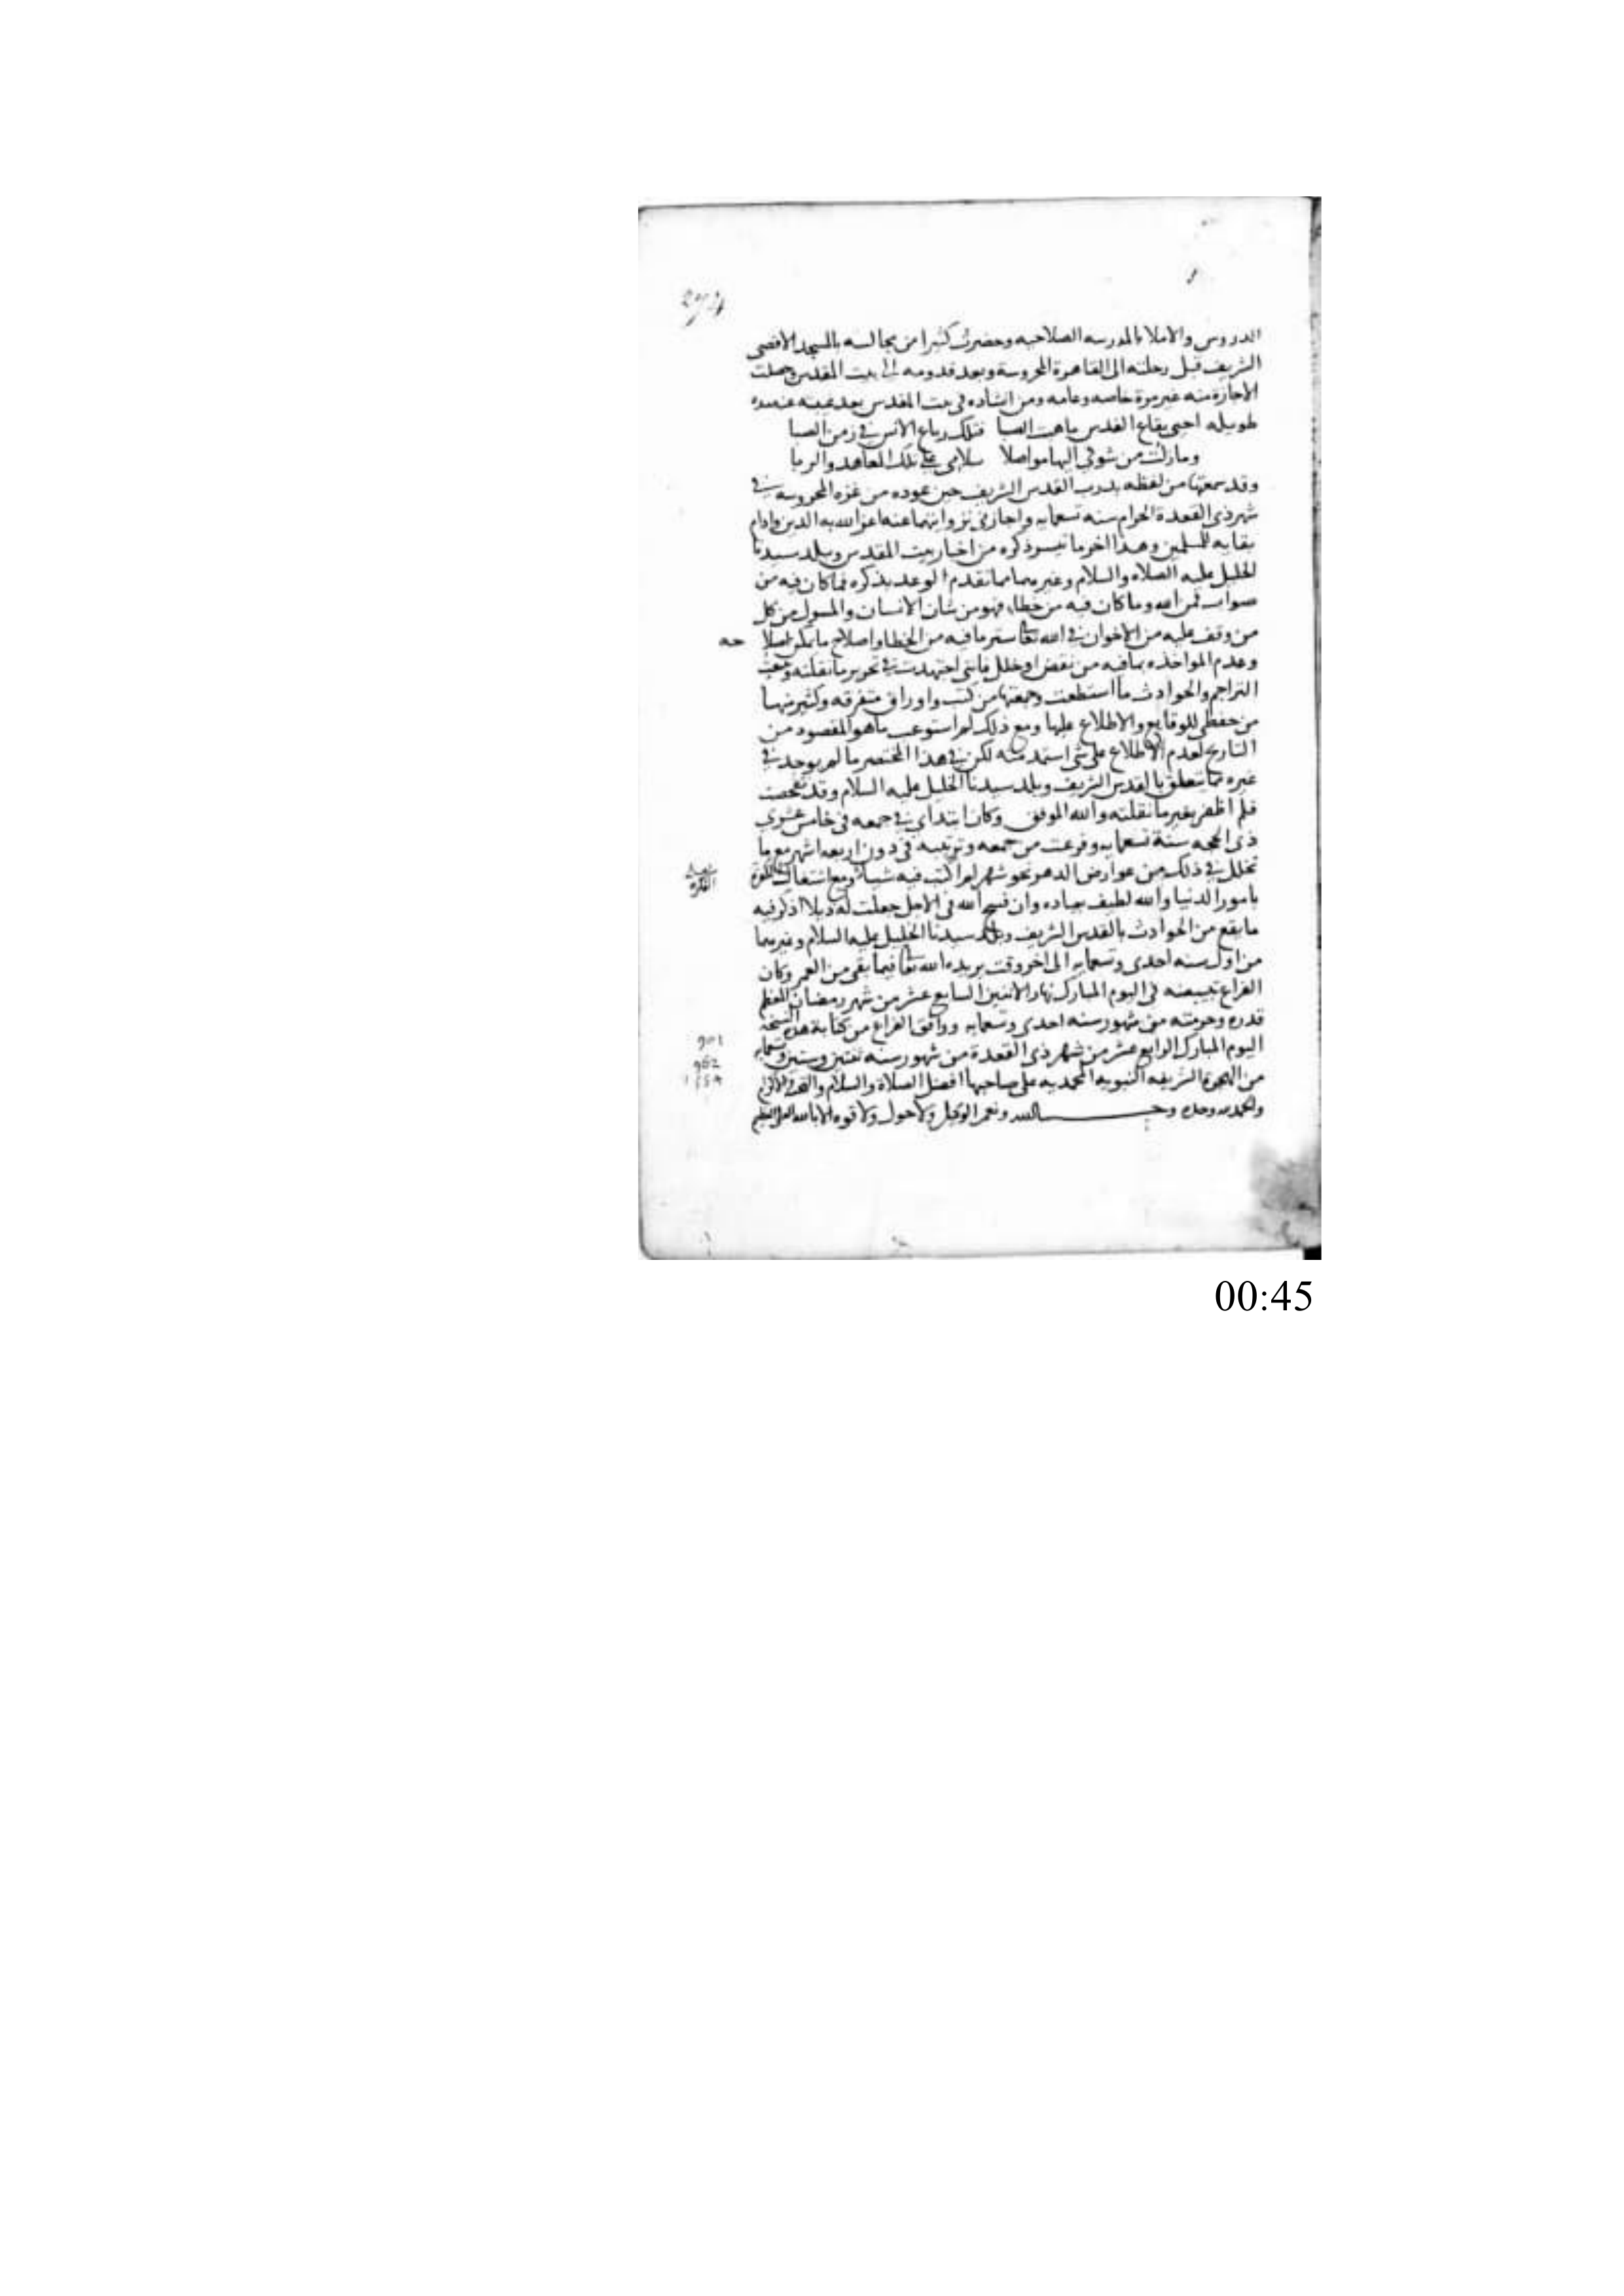 الدروس والاملا بالمدرسه الصلاحيه وحضرت كثيرا من مجالسه بالمسجد الاقصى
الشريف قبل رحلته الى القاهرة المحروسة وبعد قدومه الى بيت المقدس وحصلت
الاجازة منه غير مرة خاصه وعامه ومن انشاده فى بيت المقدس بعد غيبته عنه مده
طويله احيى بقاع القدس ما هبت الصبا فتلك رباع الانس في زمن الصبا
وما زلت من شوقي اليها مواصلا سلامي على تلك المعاهد والربا
وقد سمعتها من لفظه بدرب القدس الشريف حين عوده من غزه المحروسه في
شهر ذى القعدة الحرام سنه تسعمايه واجازني بروايتهما عنه اعز الله به الدين وادام
بقايه للمسلمين وهذا اخر ما تيسر ذكره من اخبار بيت المقدس وبلد سيدنا
الخليل عليه الصلاه والسلام وغيرهما مما تقدم الوعد بذكره فما كان فيه من
صواب فمن الله وما كان فيه من خطا، فهو من شان الانسان والمسول من كل
من وقف عليه من الاخوان في الله تعا ستر ما فيه من الخطا واصلاح ما يمكن اصلا حه
وعدم المواخذه بما فيه من نقص او خلل فانى اجتهدت في تحرير ما نقلته وجمعت
التراجم والحوادث ما استطعت وجمعتها من كتب واوراق متفرقه وكثير منها
من حفظى للوقايع والاطلاع عليها ومع ذلك لم استوعب ما هو المقصود من
التاريخ لعدم الاطلاع على شى استمد منه لكن في هذا المختصر ما لم يوجد في
غيره مما يتعلق بالقدس الشريف وبلد سيدنا الخليل عليه السلام وقد تفحصت
فلم اظفر بغير ما نقلته والله الموفق وكان ابتداي في جمعه فى خامس عشرى
ذى الحجه سنة تسعمايه وفرغت من جمعه وترتيبه فى دون اربعه اشهر مع ما
تخلل في ذلك من عوارض الدهر نحو شهر لم اكتب فيه شيا ومع اشتغال الفكرة
الفكرة
بامور الدنيا والله لطيف بعباده وان فسح الله فى الاجل جعلت له ذيلا اذكر فيه
ما يقع من الحوادث بالقدس الشريف وبلد سيدنا الخليل عليه السلام وغيرهما
من اول سنه احدى وتسعمايه الى اخر وقت يريده الله تعا فيما بقى من العمر وكان
الفراغ تبييضه فى اليوم المبارك نهار الاثنين السابع عشر من شهر رمضان المعظم
قدره وحرمته من شهور سنه احدى وتسعمايه ووافق الفراغ من كتابة هذه النسخه
901
اليوم المبارك الرابع عشر من شهر ذى القعدة من شهور سنه ثنتين وستين وتسعمايه
962
من الهجرة الشريفه النبويه المحمديه على صاحبها افضل الصلاة والسلام والتحيه والاكرام
1554
والحمد لله وحده وحسبنا الله ونعم الوكيل ولا حول ولا قوه الا بالله العلى العظيم
00:45